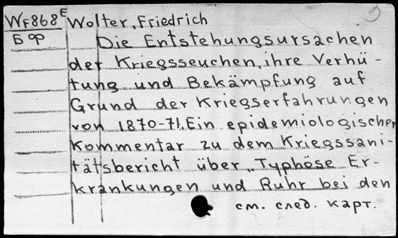 WF868 E Wolter, Friedrich
БФ
Die Entstehungsursachen
der Kriegsseuchen, ihre Verhü-
tung und Bekämpfung auf
Grund der Kriegserfahrungen
von 1870-71. Ein epidemiologischer
Kommentar zu dem Kriegssani-
tätsbericht über „Typhöse Er-
krankungen und Ruhr bei den
см. след. карт.